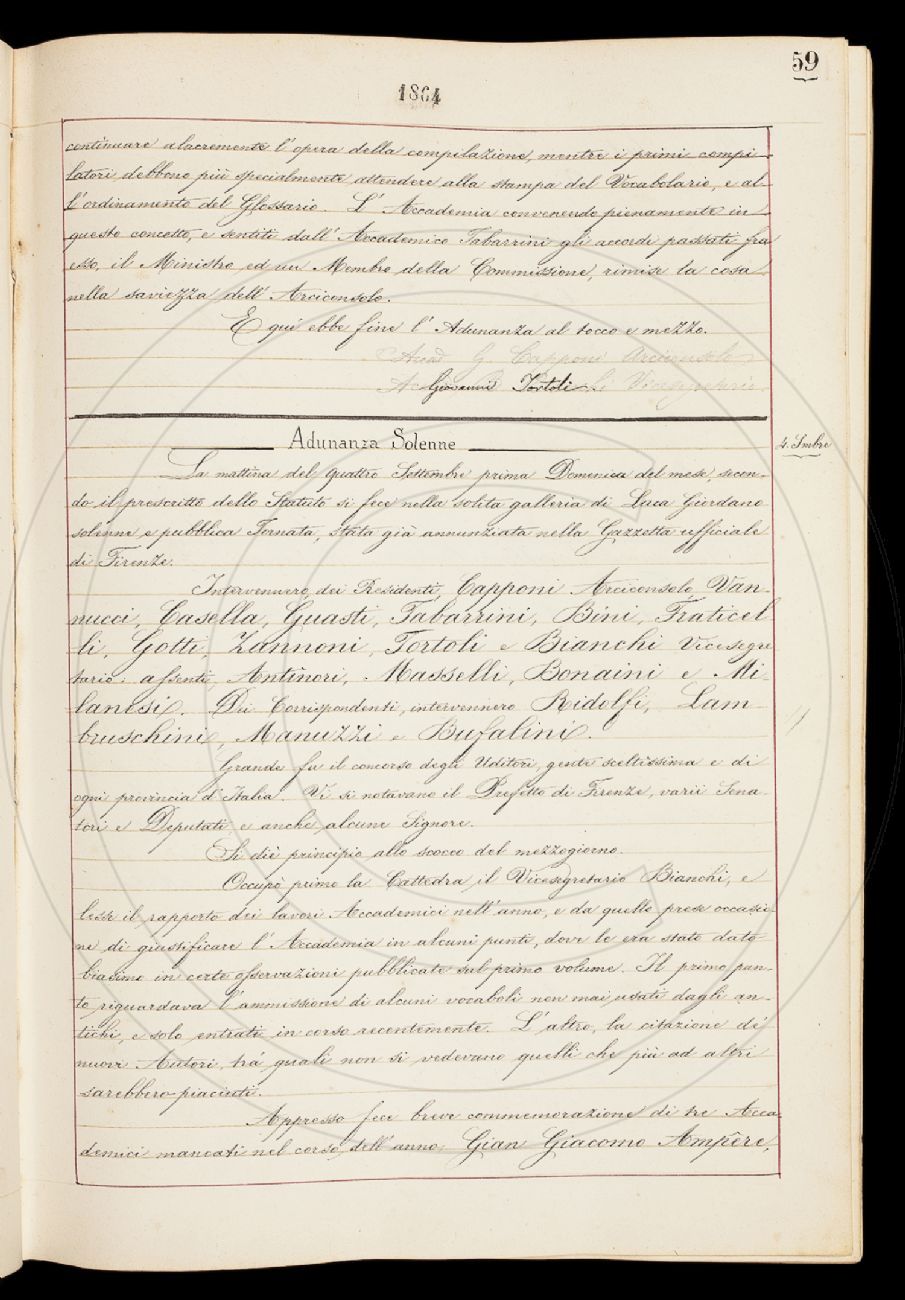 59
1864
continuare alacremente l'opera della compilazione, mentre i primi compi-
latori debbono più specialmente attendere alla stampa del Vocabolario, e al-
l'ordinamento del Glossario. L'Accademia convenendo pienamente in
questo concetto, e sentiti dall'Accademico Tabarrini gli accordi passati fra
esso, il Ministro ed un Membro della Commissione, rimise la cosa
nella saviezza dell'Arciconsolo.
E qui ebbe fine l'Adunanza al tocco e mezzo.
Accad G. Capponi Arciconsolo
Giovanni Tortoli Vicesegretario
Adunanza Solenne
4. Smbre
La mattina del quattro Settembre prima Domenica del mese, secon-
do il prescritto dello Statuto si fece nella solita galleria di Luca Giordano
solenne e pubblica Tornata, stata già annunziata nella Gazzetta ufficiale
di Firenze.
Intervennero, dei Residenti, Capponi Arciconsolo, Van-
nucci, Casella, Guasti, Tabarrini, Bini, Fraticel-
li, Gotti Zannoni, Tortoli e Bianchi Vicesegre-
tario: assenti, Antinori, Masselli, Bonaini e Mi-
lanesi. Dei Corrispondenti, intervennero Ridolfi, Lam-
bruschini, Manuzzi e Bufalini.
Grande fu il concorso degli Uditori, gente sceltissima e di
ogni provincia d'Italia. Vi si notavano il Prefetto di Firenze, varii Sena-
tori e Deputati, e anche alcune Signore.
Si diè principio allo scocco del mezzogiorno.
Occupò primo la Cattedra il Vicesegretario Bianchi, e
lesse il rapporto dei lavori Accademici nell'anno, e da quello prese occasio-
ne di giustificare l'Accademia in alcuni punti, dove le era stato dato
biasimo in certe osservazioni pubblicate sul primo volume. Il primo pun-
to riguardava l'ammissione di alcuni vocaboli non mai usati dagli an-
tichi, e solo entrati in corso recentemente. L'altro, la citazione di
nuovi Autori, trá quali non si vedevano quelli che più ad altri
sarebbero piaciuti.
Appresso fece breve commemorazione di tre Acca-
demici mancati nel corso dell'anno, Gian Giacomo Ampère,